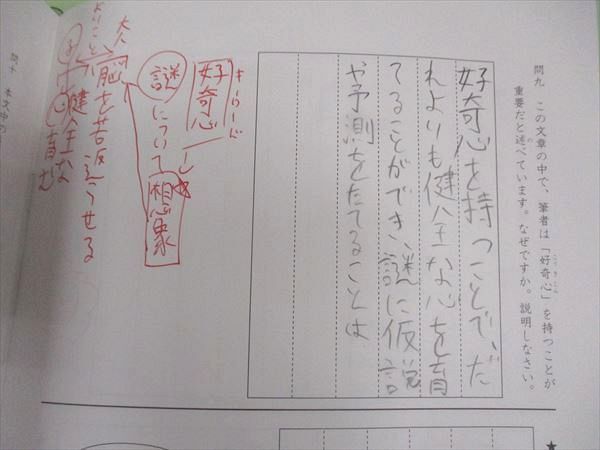 問九 この文章の中で、筆者は「好奇心」を持つことが
重要だと述べています。なぜですか。説明しなさい。
好奇心を持つことで、だ
れよりも健全な心を育
てることができ、謎に仮説
や予測をたてることは
キーワード
好奇心
謎について想像
脳を若返らせる
健全な
育む
問十 本文中の